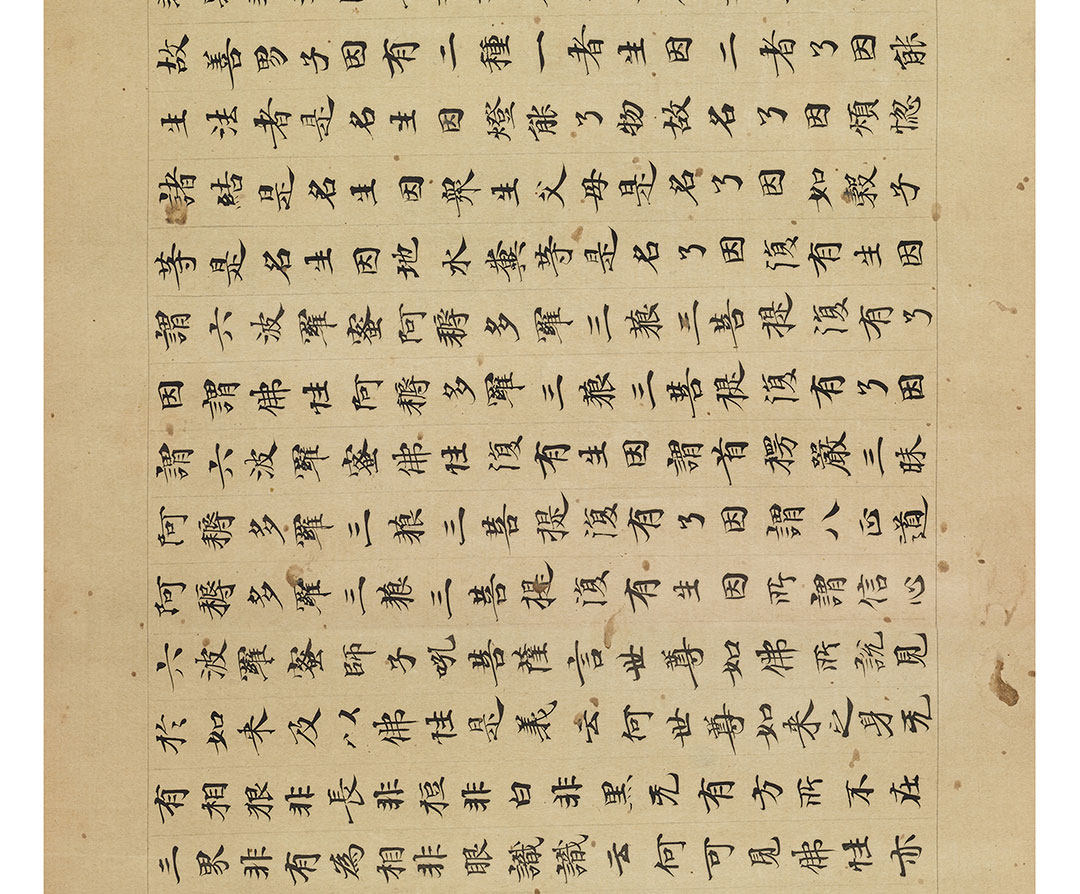 故善男子因有二種一者生因二者了因能
生法者是名生因燈能了物故名了因煩惚
諸結是名生因眾生父母是名了因如穀子
等是名生因地水糞等是名了因復有生因
謂六波羅蜜阿耨多羅三藐三菩提復有了
因謂佛性阿耨多羅三藐三菩提復有了因
謂六波羅蜜佛性復有生因謂首楞嚴三昧
阿耨多羅三藐三菩提復有了因謂八正道
阿耨多羅三藐三菩提復有生因所謂信心
六波羅蜜師子吼菩薩言世尊如佛所說見
於如来及以佛性是義云何世尊如来之身无
有相貌非長非短非白非黑无有方所不在
三界非有為相非眼識識云何可見佛性亦